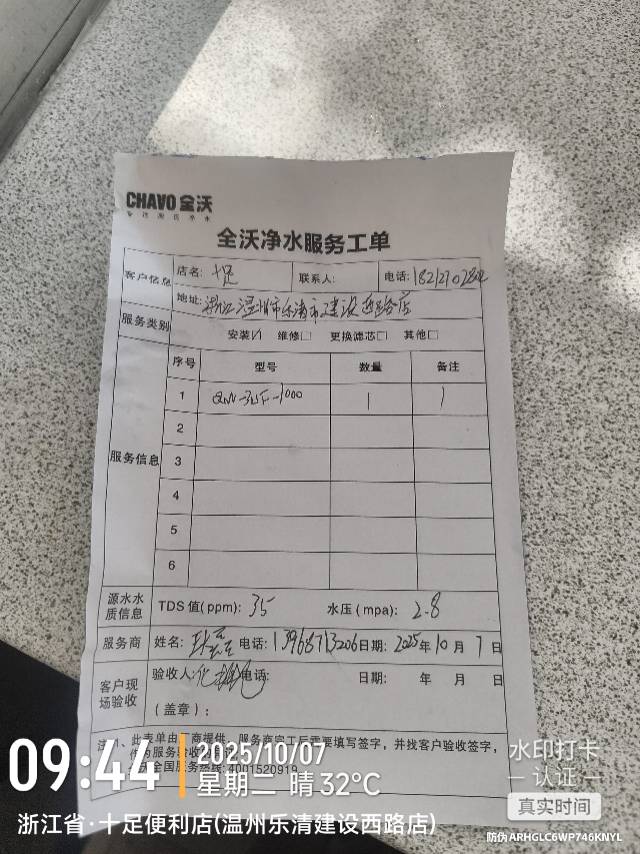 CHAVO 全沃
专注商用净水
全沃净水服务工单
客户信息 店名: 十足 联系人: 电话:
地址: 浙江温州市乐清市建设西路店
服务类别 安装☑ 维修□ 更换滤芯□ 其他□
服务信息
序号 型号 数量 备注
1 QW-3UF-1000 1 1
2
3
4
5
6
源水水质信息 TDS 值(ppm): 35 水压(mpa): 2.8
服务商 姓名: 电话: 13968713206 日期: 2025年10月7日
客户现场验收 验收人: 电话: 日期: 年 月 日
(盖章):
注: 1、此表单由 商提供, 服务商完工后需要填写签字, 并找客户验收签字,
作为服务验收
全国服务热线: 4001520919
09:44
2025/10/07
星期二 晴 32°C
浙江省·十足便利店(温州乐清建设西路店)
水印打卡
认证
真实时间
防伪 ARHGLC6WP746KNYL